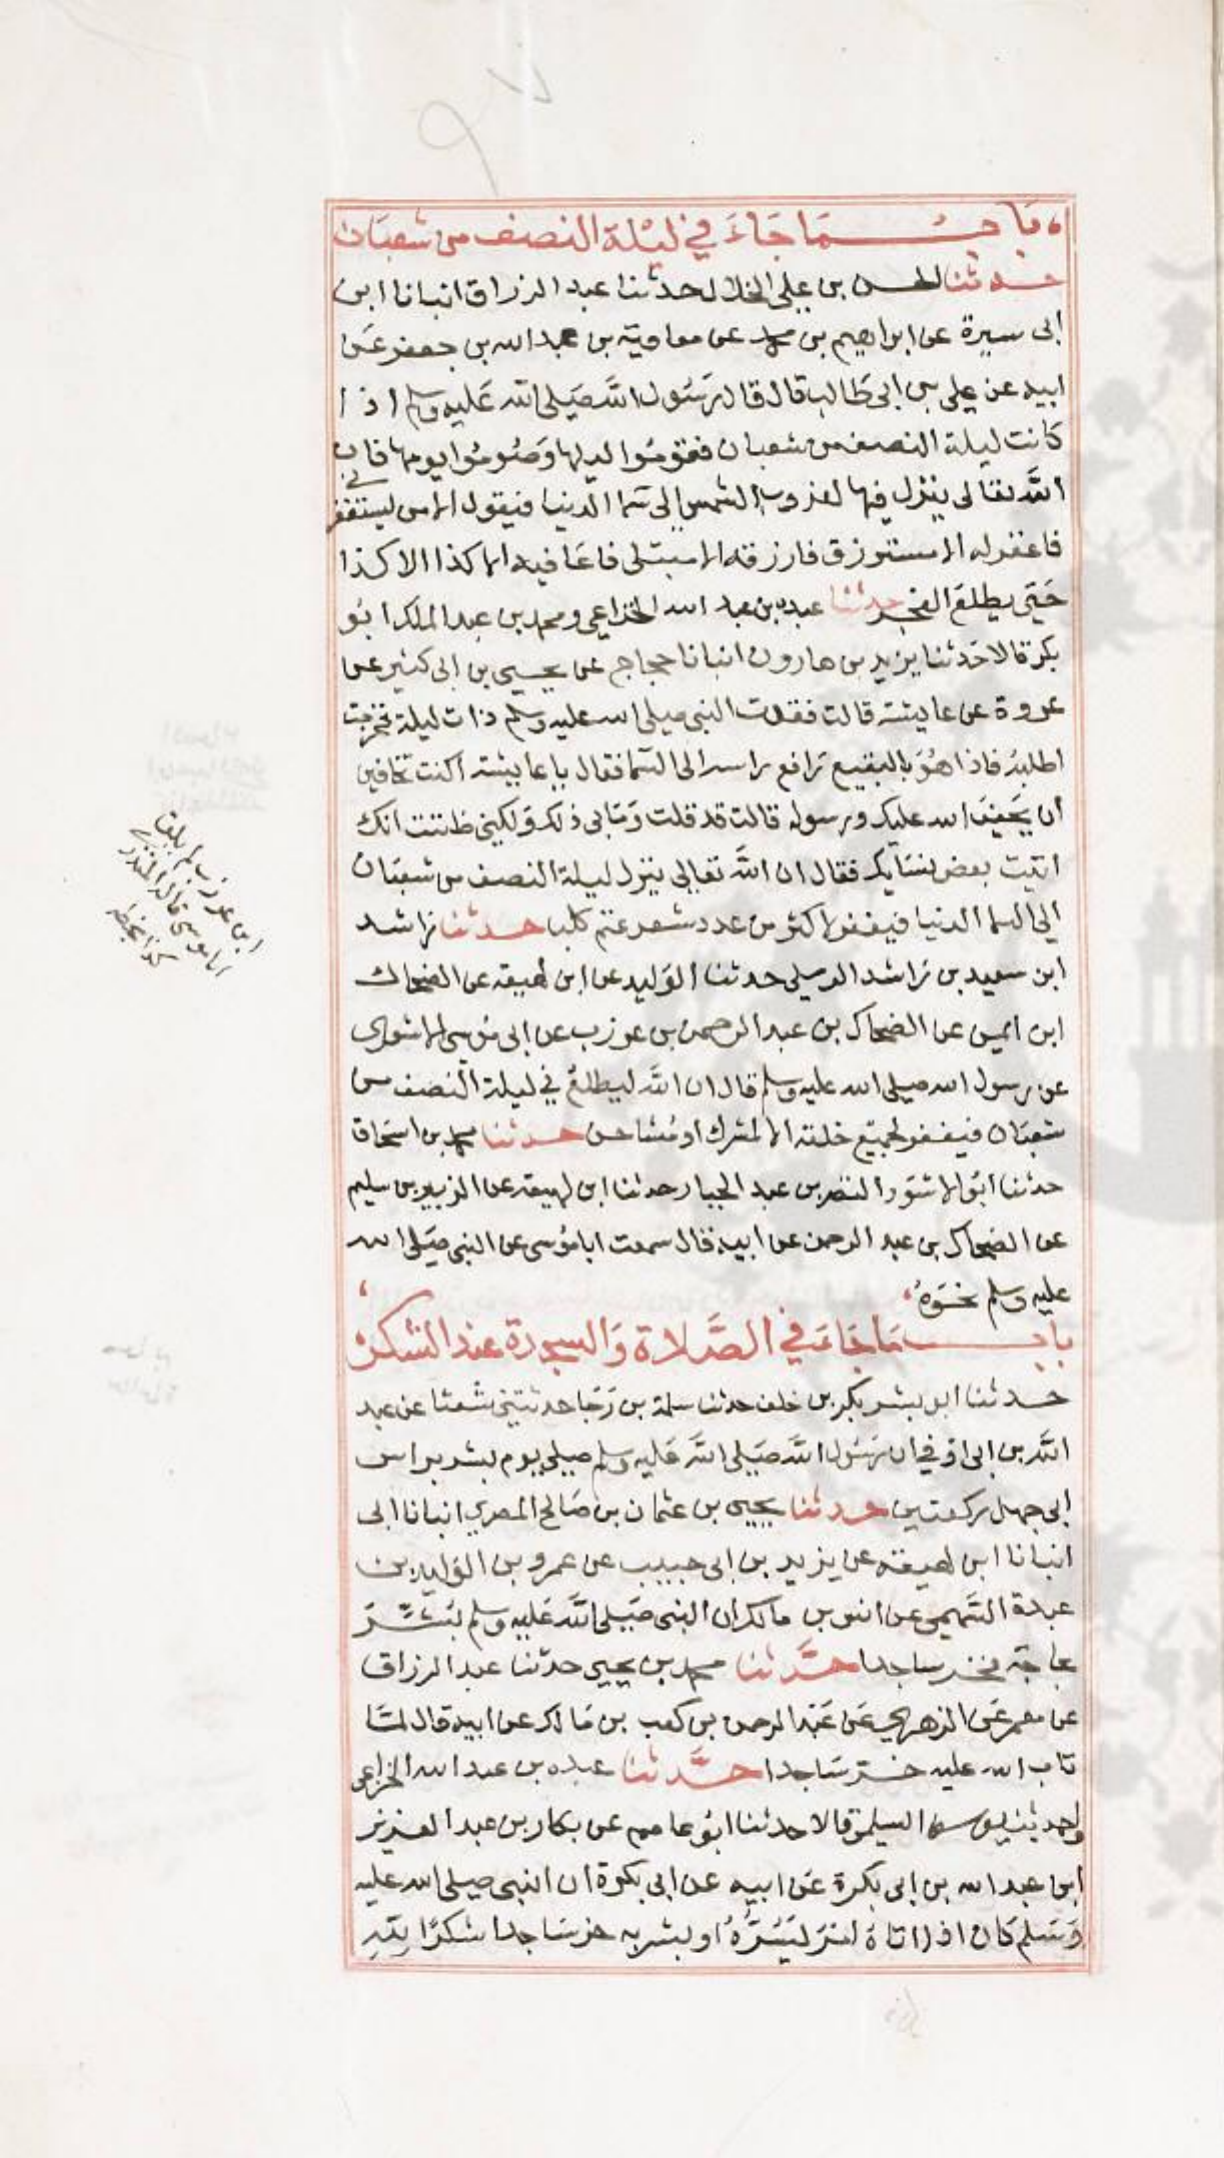 باب ما جاء في ليلة النصف من شعبان
حدثنا الحسن بن علي الخلال حدثنا عبد الرزاق انبانا ابن
ابي سبرة عن ابراهيم بن محمد عن معاوية بن عبد الله بن جعفر عن
ابيه عن علي بن ابي طالب قال قال رسول الله صلى الله عليه وسلم اذا
كانت ليلة النصف من شعبان فقوموا ليلها وصوموا يومها فان
الله تعالى ينزل فيها لغروب الشمس الى سما الدنيا فيقول الا من ليستغفر لي
فاغفر له الا مسترزق فارزقه الا مبتلى فاعافيه الا كذا الا كذا
حتى يطلع الفجر حدثنا عبده بن عبد الله الخزاعي ومحمد بن عبد الملك ابو
بكر قالا حدثنا يزيد بن هارون انبانا حجاج عن يحيى بن ابي كثير عن
عروة عن عايشة قالت فقدت النبي صلى الله عليه وسلم ذات ليلة فخرجت
اطلبه فاذا هو بالبقيع رافع راسه الى السما فقال يا عايشة اكنت تخافين
ان يحيف الله عليك ورسوله قالت قد قلت وما بي ذلك ولكني ظننت انك
اتيت بعض نسايك فقال ان الله تعالى ينزل ليلة النصف من شعبان
الى السما الدنيا فيغفر لاكثر من عدد شعر غنم كلب حدثنا راشد
ابن سعيد بن راشد الرملي حدثنا الوليد عن ابن لهيعة عن الضحاك
ابن ايمن عن الضحاك بن عبد الرحمن بن عرزب عن ابي موسى الاشعري
عن رسول الله صلى الله عليه وسلم قال ان الله ليطلع في ليلة النصف من
شعبان فيغفر لجميع خلقه الا لمشرك او مشاحن حدثنا محمد بن اسحاق
حدثنا ابو الاسود النضر بن عبد الجبار حدثنا ابن لهيعة عن الزبير بن سليم
عن الضحاك بن عبد الرحمن عن ابيه قال سمعت ابا موسى عن النبي صلى الله
عليه وسلم نحوه
باب ما جاء في الصلاة والسجدة عند الشكر
حدثنا ابو بشر بكر بن خلف حدثنا سلمة بن رجا حدثتني شعثا عن عبد
الله بن ابي اوفي ان رسول الله صلى الله عليه وسلم صلى يوم بشر براس
ابي جهل ركعتين حدثنا يحيى بن عثمان بن صالح المصري انبانا ابي
انبانا ابن لهيعة عن يزيد بن ابي حبيب عن عمرو بن الوليد بن
عبدة السهمي عن انس بن مالك ان النبي صلى الله عليه وسلم بشر
بحاجة فخر ساجدا حدثنا محمد بن يحيى حدثنا عبد الرزاق
عن معمر عن الزهري عن عبد الرحمن بن كعب بن مالك عن ابيه قال لما
تاب الله عليه خر ساجدا حدثنا عبده بن عبد الله الخزاعي
واحمد بن يوسف السلمي قالا حدثنا ابو عاصم عن بكار بن عبد العزيز
ابن عبد الله بن ابي بكرة عن ابيه عن ابي بكرة ان النبي صلى الله عليه
وسلم كان اذا اتاه امر يسره او بشر به خر ساجدا شكرا لله
ابن عرزب لم يلق
ابا موسى قاله المنذري
كذا بخطه